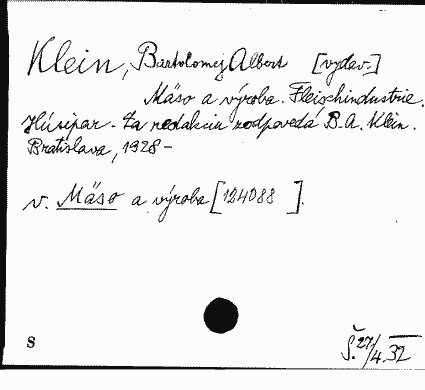 Klein, Bartolomej Albert [vydav.]
Mäso a výroba. Fleischindustrie.
Húsipar. Za redakciu zodpovedá B.A. Klein.
Bratislava, 1928-
v. Mäso a výroba [124088 ].
S
Š. 27/4.32